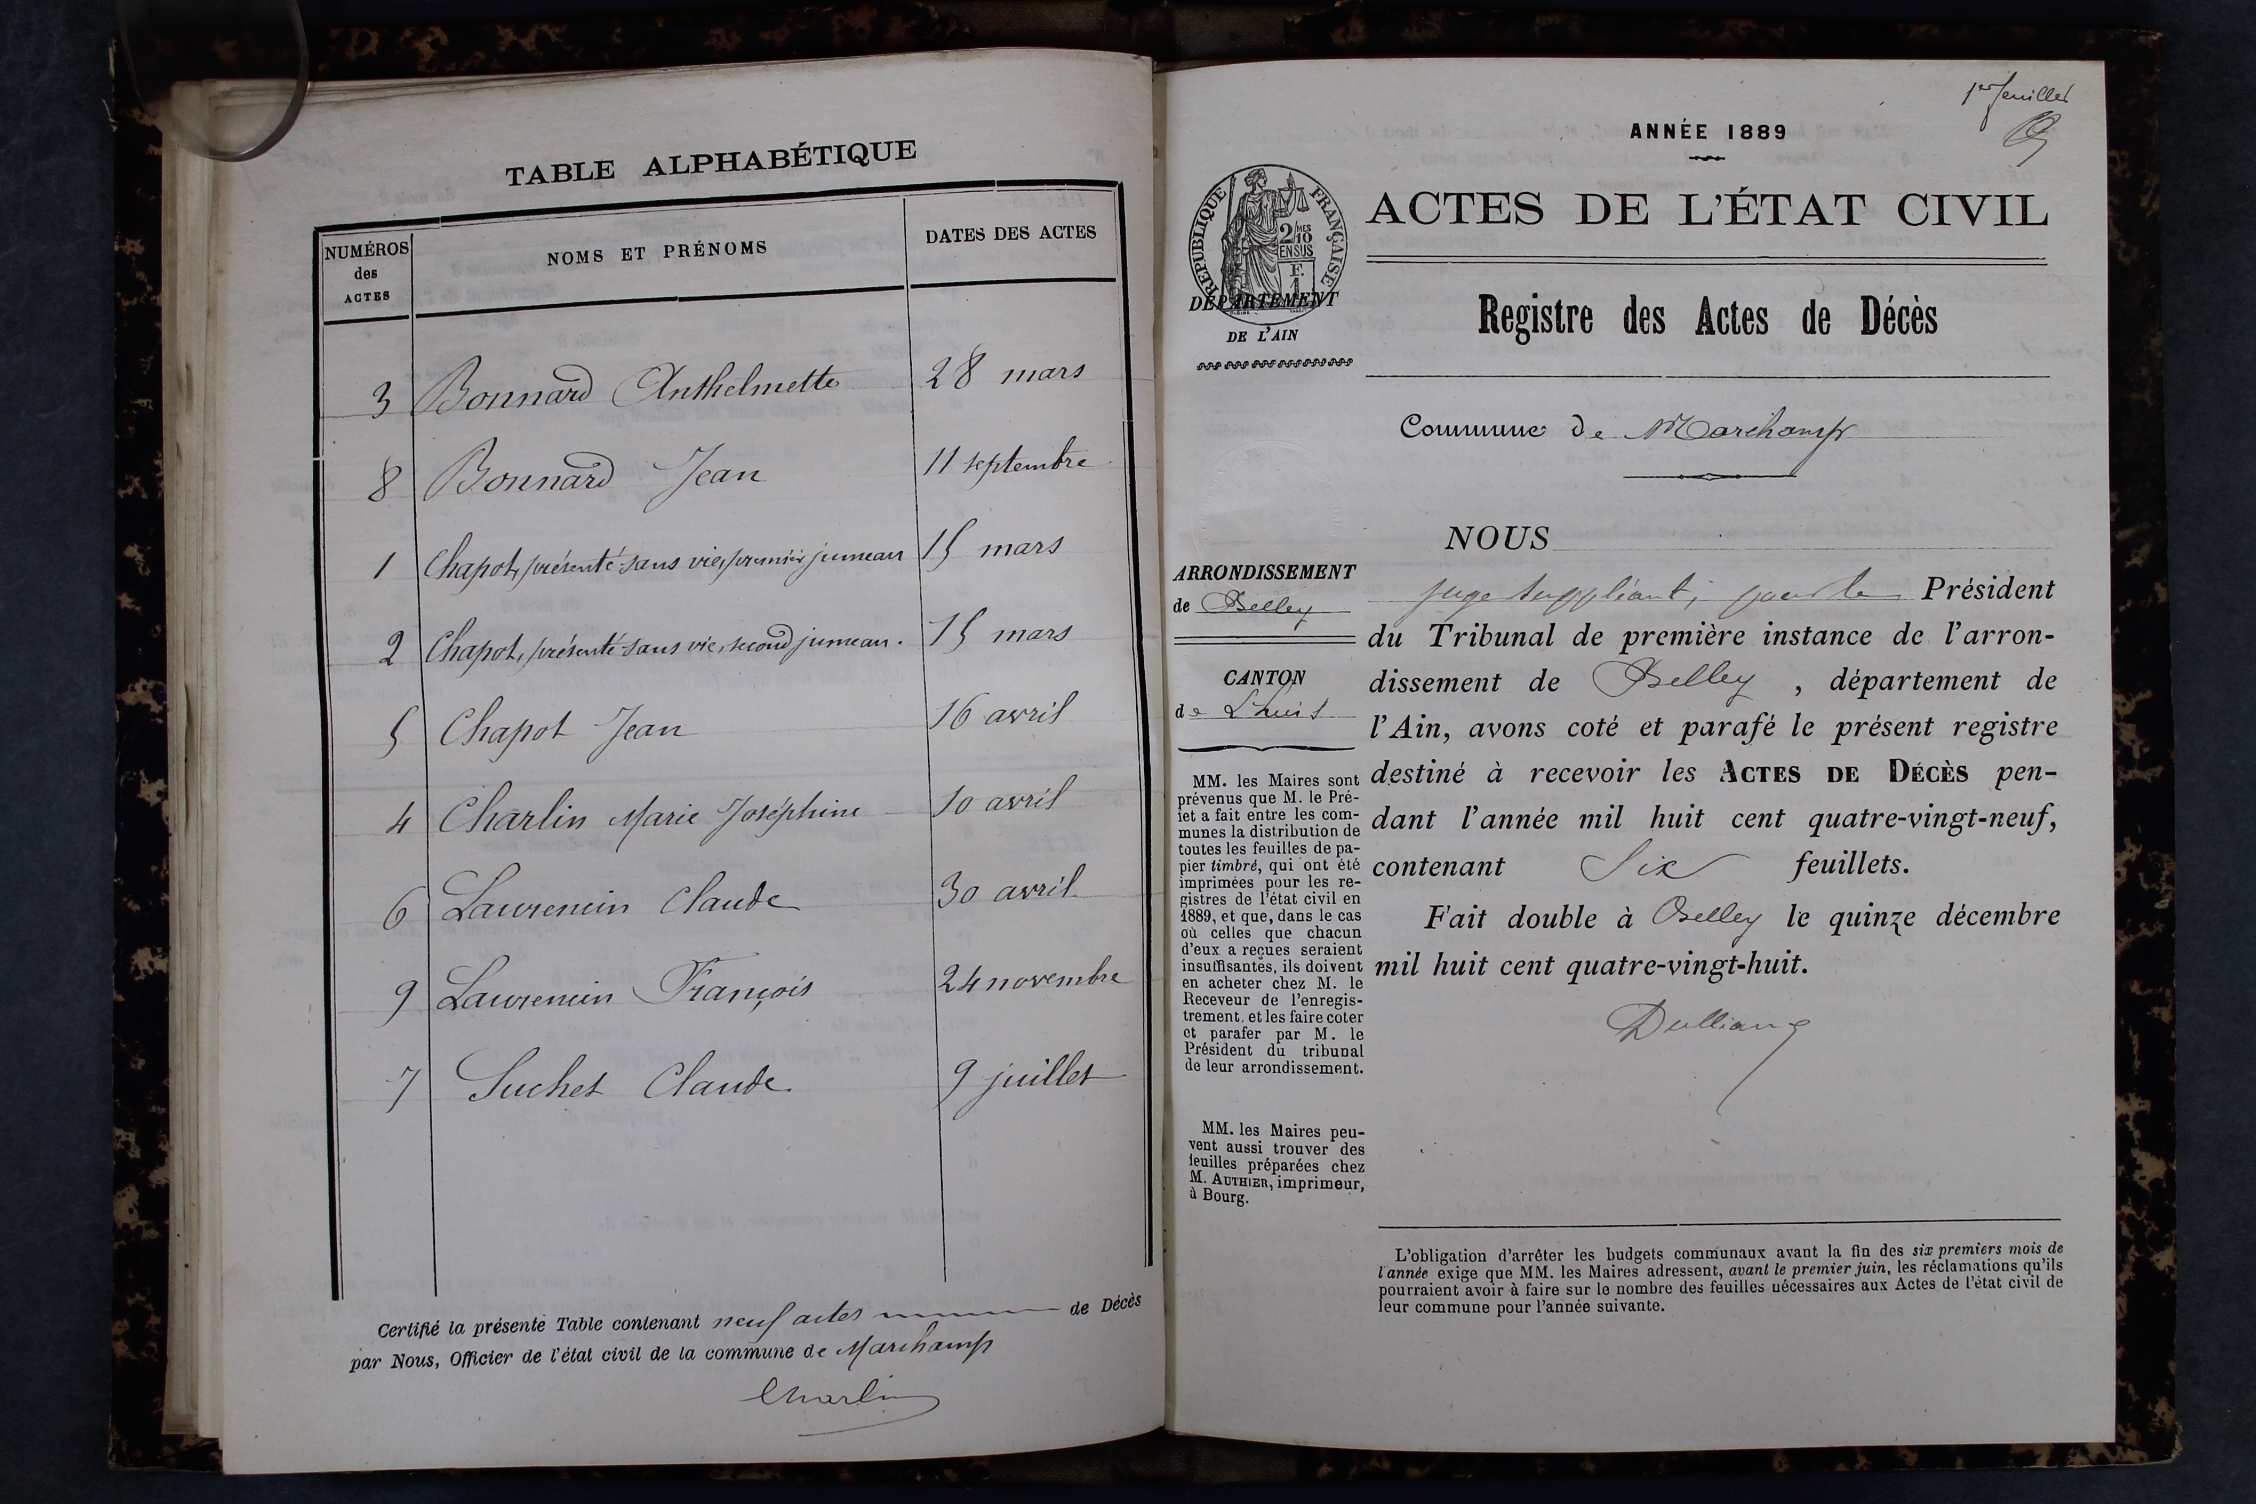 TABLE ALPHABÉTIQUE
NUMÉROS des ACTES
NOMS ET PRÉNOMS
DATES DES ACTES
3 Bonnard Anthelmette 28 mars
8 Bonnard Jean 11 septembre
1 Chapot, présenté sans vie, premier jumeau 15 mars
2 Chapot, présenté sans vie, second jumeau. 15 mars
5 Chapot Jean 16 avril
4 Charlin Marie Joséphine 10 avril
6 Laurencin Claude 30 avril
9 Laurencin François 24 novembre
7 Suchet Claude 9 juillet
Certifié la présente Table contenant neuf actes de Décès
par Nous, Officier de l'état civil de la commune de Marchamp
Charlin
1er feuillet
ANNÉE 1889
RÉPUBLIQUE FRANÇAISE
2 MES 10 EN SUS
F. 1
ACTES DE L'ÉTAT CIVIL
DÉPARTEMENT
DE L'AIN
Registre des Actes de Décès
Commune de Marchamp
ARRONDISSEMENT
de Belley
CANTON
de Lhuis
MM. les Maires sont
prévenus que M. le Pré-
fet a fait entre les com-
munes la distribution de
toutes les feuilles de pa-
pier timbré, qui ont été
imprimées pour les re-
gistres de l'état civil en
1889, et que, dans le cas
où celles que chacun
d'eux a reçues seraient
insuffisantes, ils doivent
en acheter chez M. le
Receveur de l'enregis-
trement, et les faire coter
et parafer par M. le
Président du tribunal
de leur arrondissement.
MM. les Maires peu-
vent aussi trouver des
feuilles préparées chez
M. AUTHIER, imprimeur,
à Bourg.
NOUS
juge suppléant, pour le Président
du Tribunal de première instance de l'arron-
dissement de Belley , département de
l'Ain, avons coté et parafé le présent registre
destiné à recevoir les ACTES DE DÉCÈS pen-
dant l'année mil huit cent quatre-vingt-neuf,
contenant Six feuillets.
Fait double à Belley le quinze décembre
mil huit cent quatre-vingt-huit.
L'obligation d'arrêter les budgets communaux avant la fin des six premiers mois de
l'année exige que MM. les Maires adressent, avant le premier juin, les réclamations qu'ils
pourraient avoir à faire sur le nombre des feuilles nécessaires aux Actes de l'état civil de
leur commune pour l'année suivante.